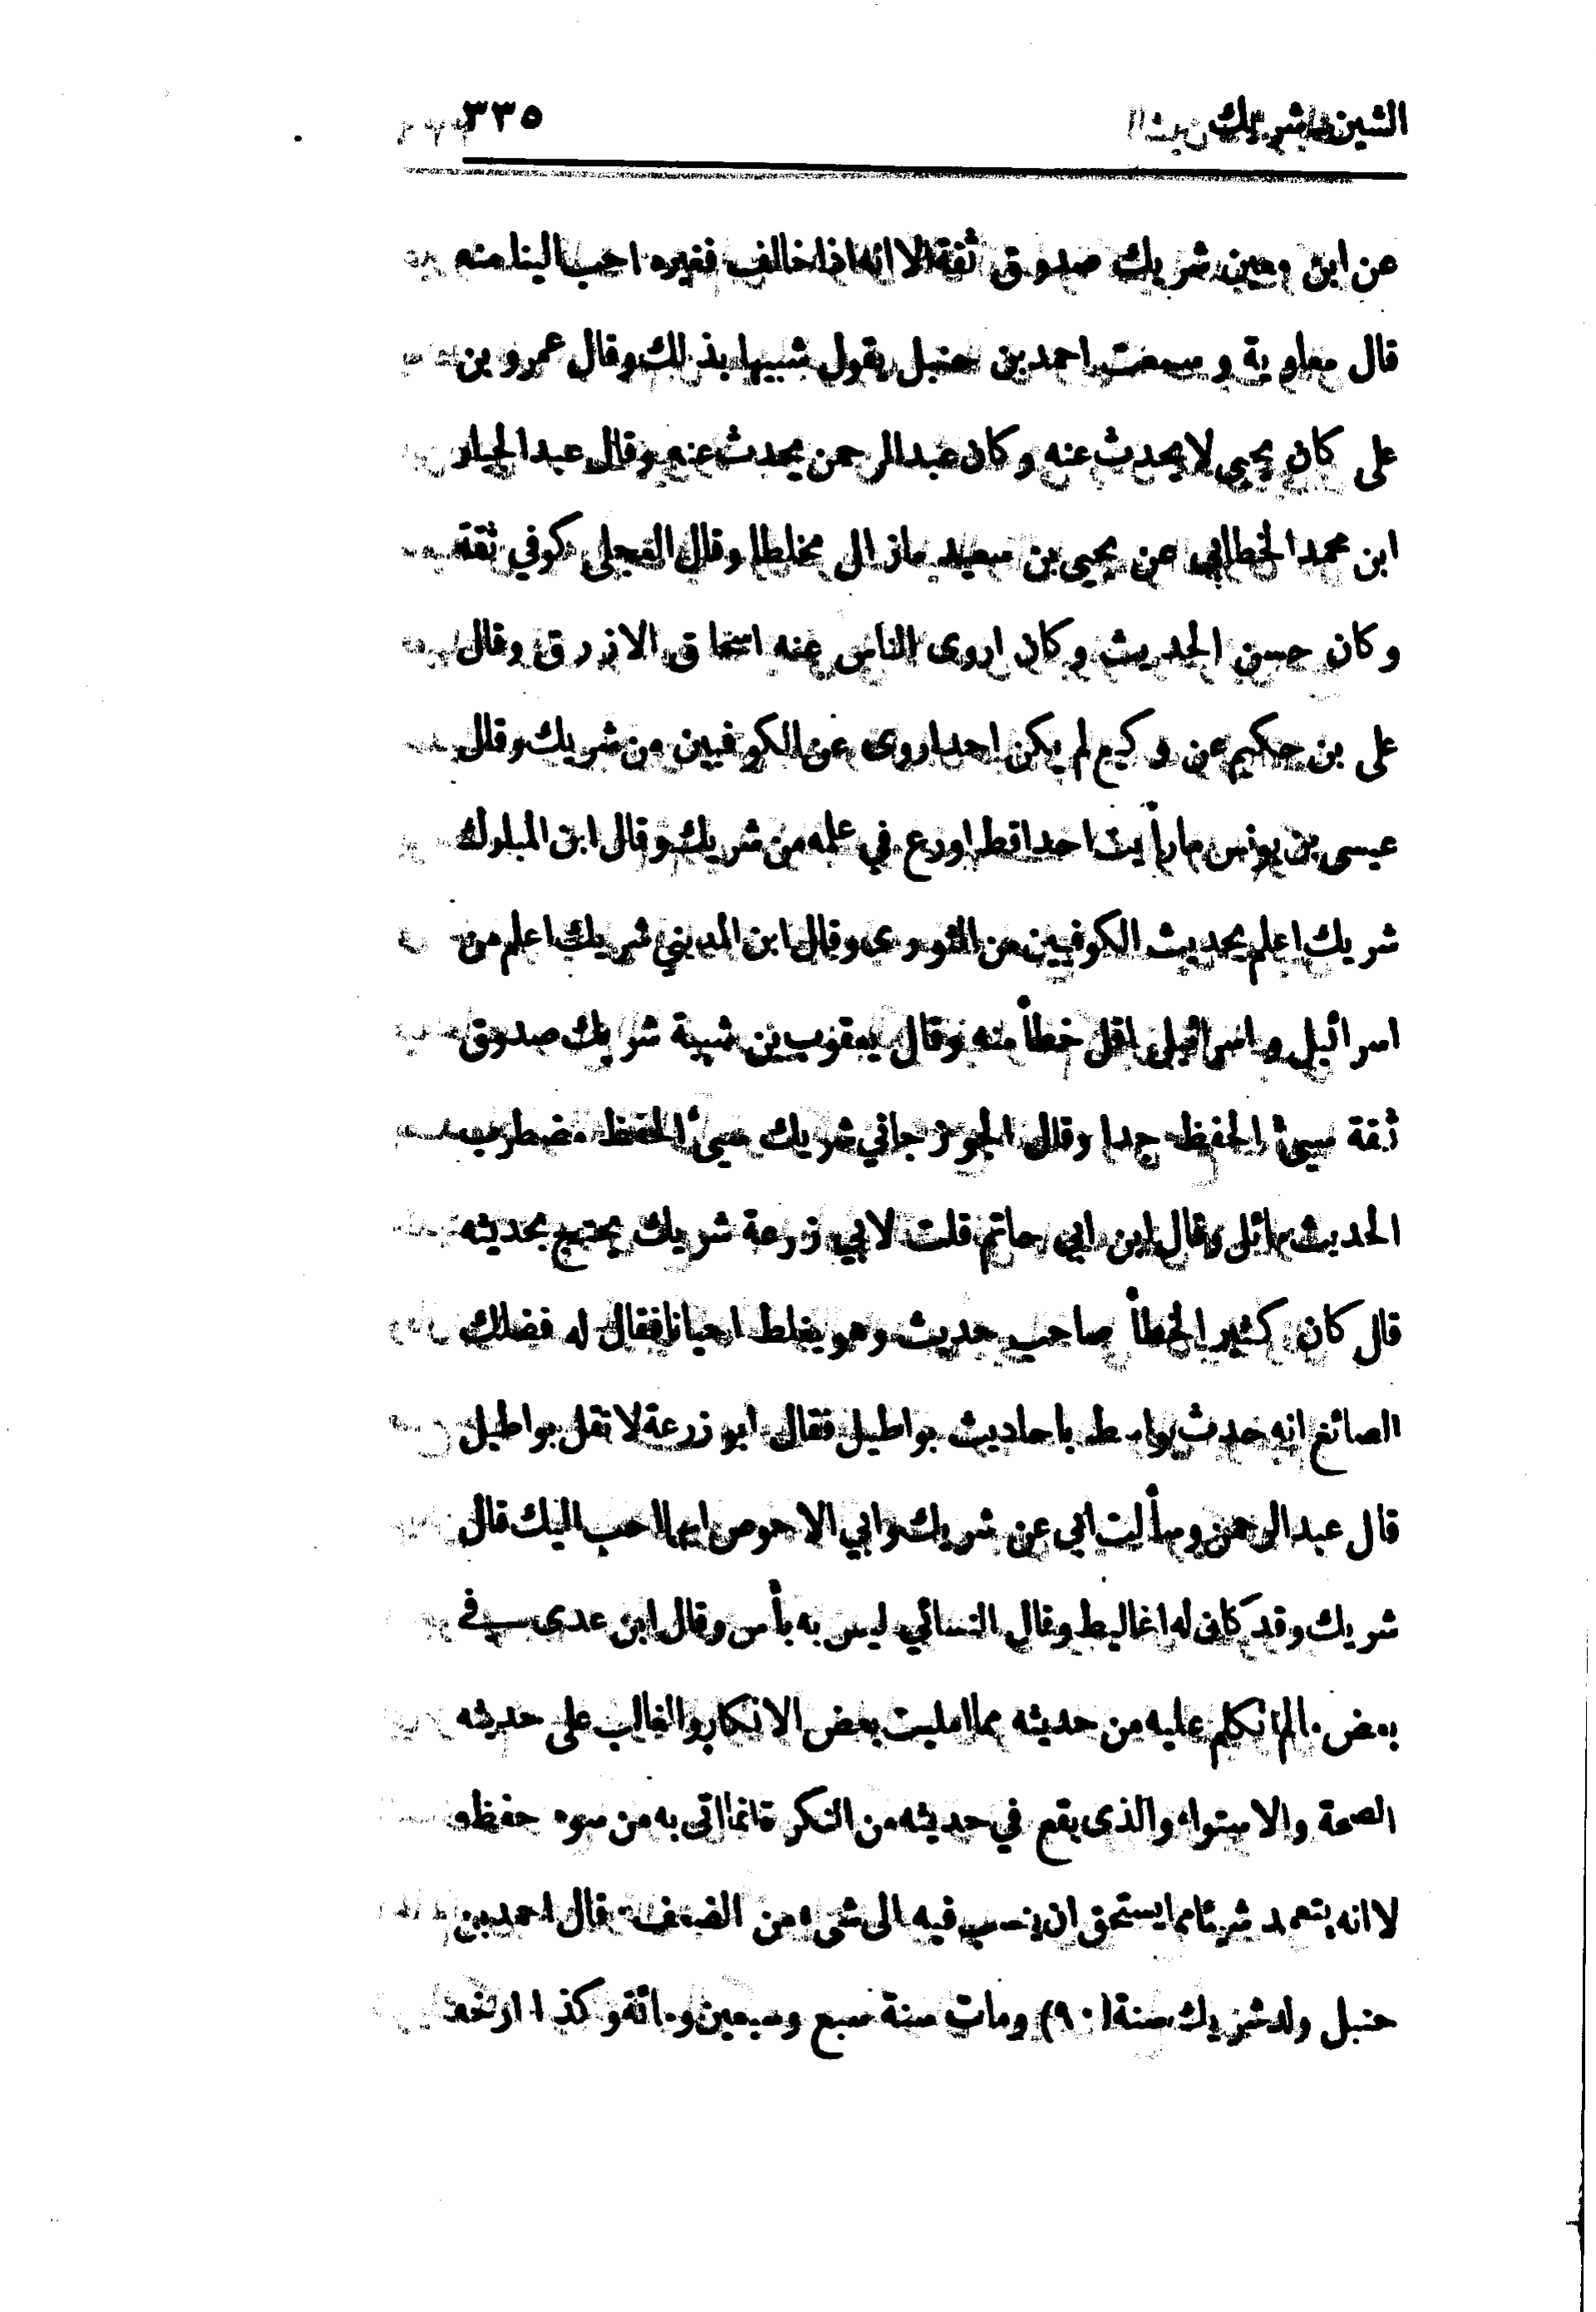 الشين شريك ٣٣٥
عن ابن معين شريك صدوق ثقة الا انه اذا خالف فغيره احب الينا منه
قال معاوية وسمعت احمد بن حنبل يقول شبيها بذلك وقال عمرو بن
على كان يحيى لا يحدث عنه وكان عبد الرحمن يحدث عنه وقال عبد الجبار
ابن محمد الخطابي عن يحيى بن سعيد مازال مخلطا وقال العجلى كوفي ثقة
وكان حسن الحديث وكان اروى الناس عنه اسحاق الازرق وقال
على بن حكيم عن وكيع لم يكن احد اروى عن الكوفيين من شريك وقال
عيسى بن يونس ما رأيت احدا قط اورع في علمه من شريك وقال ابن المبارك
شريك اعلم بحديث الكوفيين من الثورى وقال ابن المديني شريك اعلم من
اسرائيل واسرائيل اقل خطأ منه وقال يعقوب بن شيبة شريك صدوق
ثقة سيئ الحفظ جدا وقال الجوزجاني شريك سيئ الحفظ مضطرب
الحديث مائل وقال ابن ابي حاتم قلت لابي زرعة شريك يحتج بحديثه
قال كان كثير الخطأ صاحب حديث وهو يغلط احيانا فقال له فضلك
الصائغ انه حدث بواسط باحاديث بواطيل فقال ابو زرعة لا تقل بواطيل
قال عبد الرحمن وسألت ابي عن شريك وابي الاحوص ايهما احب اليك قال
شريك وقد كان له اغاليط وقال النسائي ليس به بأس وقال ابن عدى في
بعض مالم اتكلم عليه من حديثه مما امليت بعض الانكار والغالب على حديثه
الصحة والاستواء والذى يقع في حديثه من النكرة انما اتى به من سوء حفظه
لا انه يتعمد شيئا مما يستحق ان ينسب فيه الى شىء من الضعف قال احمد بن
حنبل ولد شريك سنة (٩٠) ومات سنة سبع وسبعين ومائة وكذا ارخه